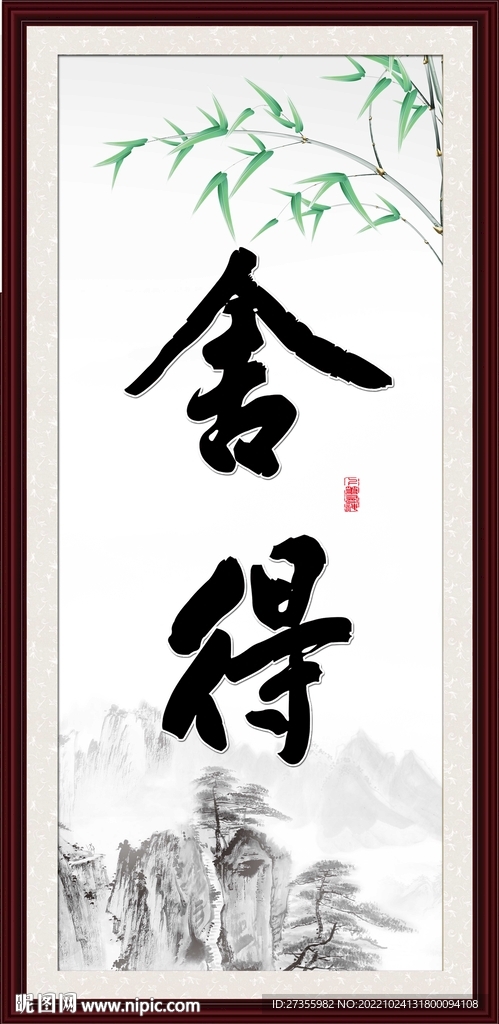 舍
得
昵图网 www.nipic.com
ID:27355982 NO:20221024131800094108